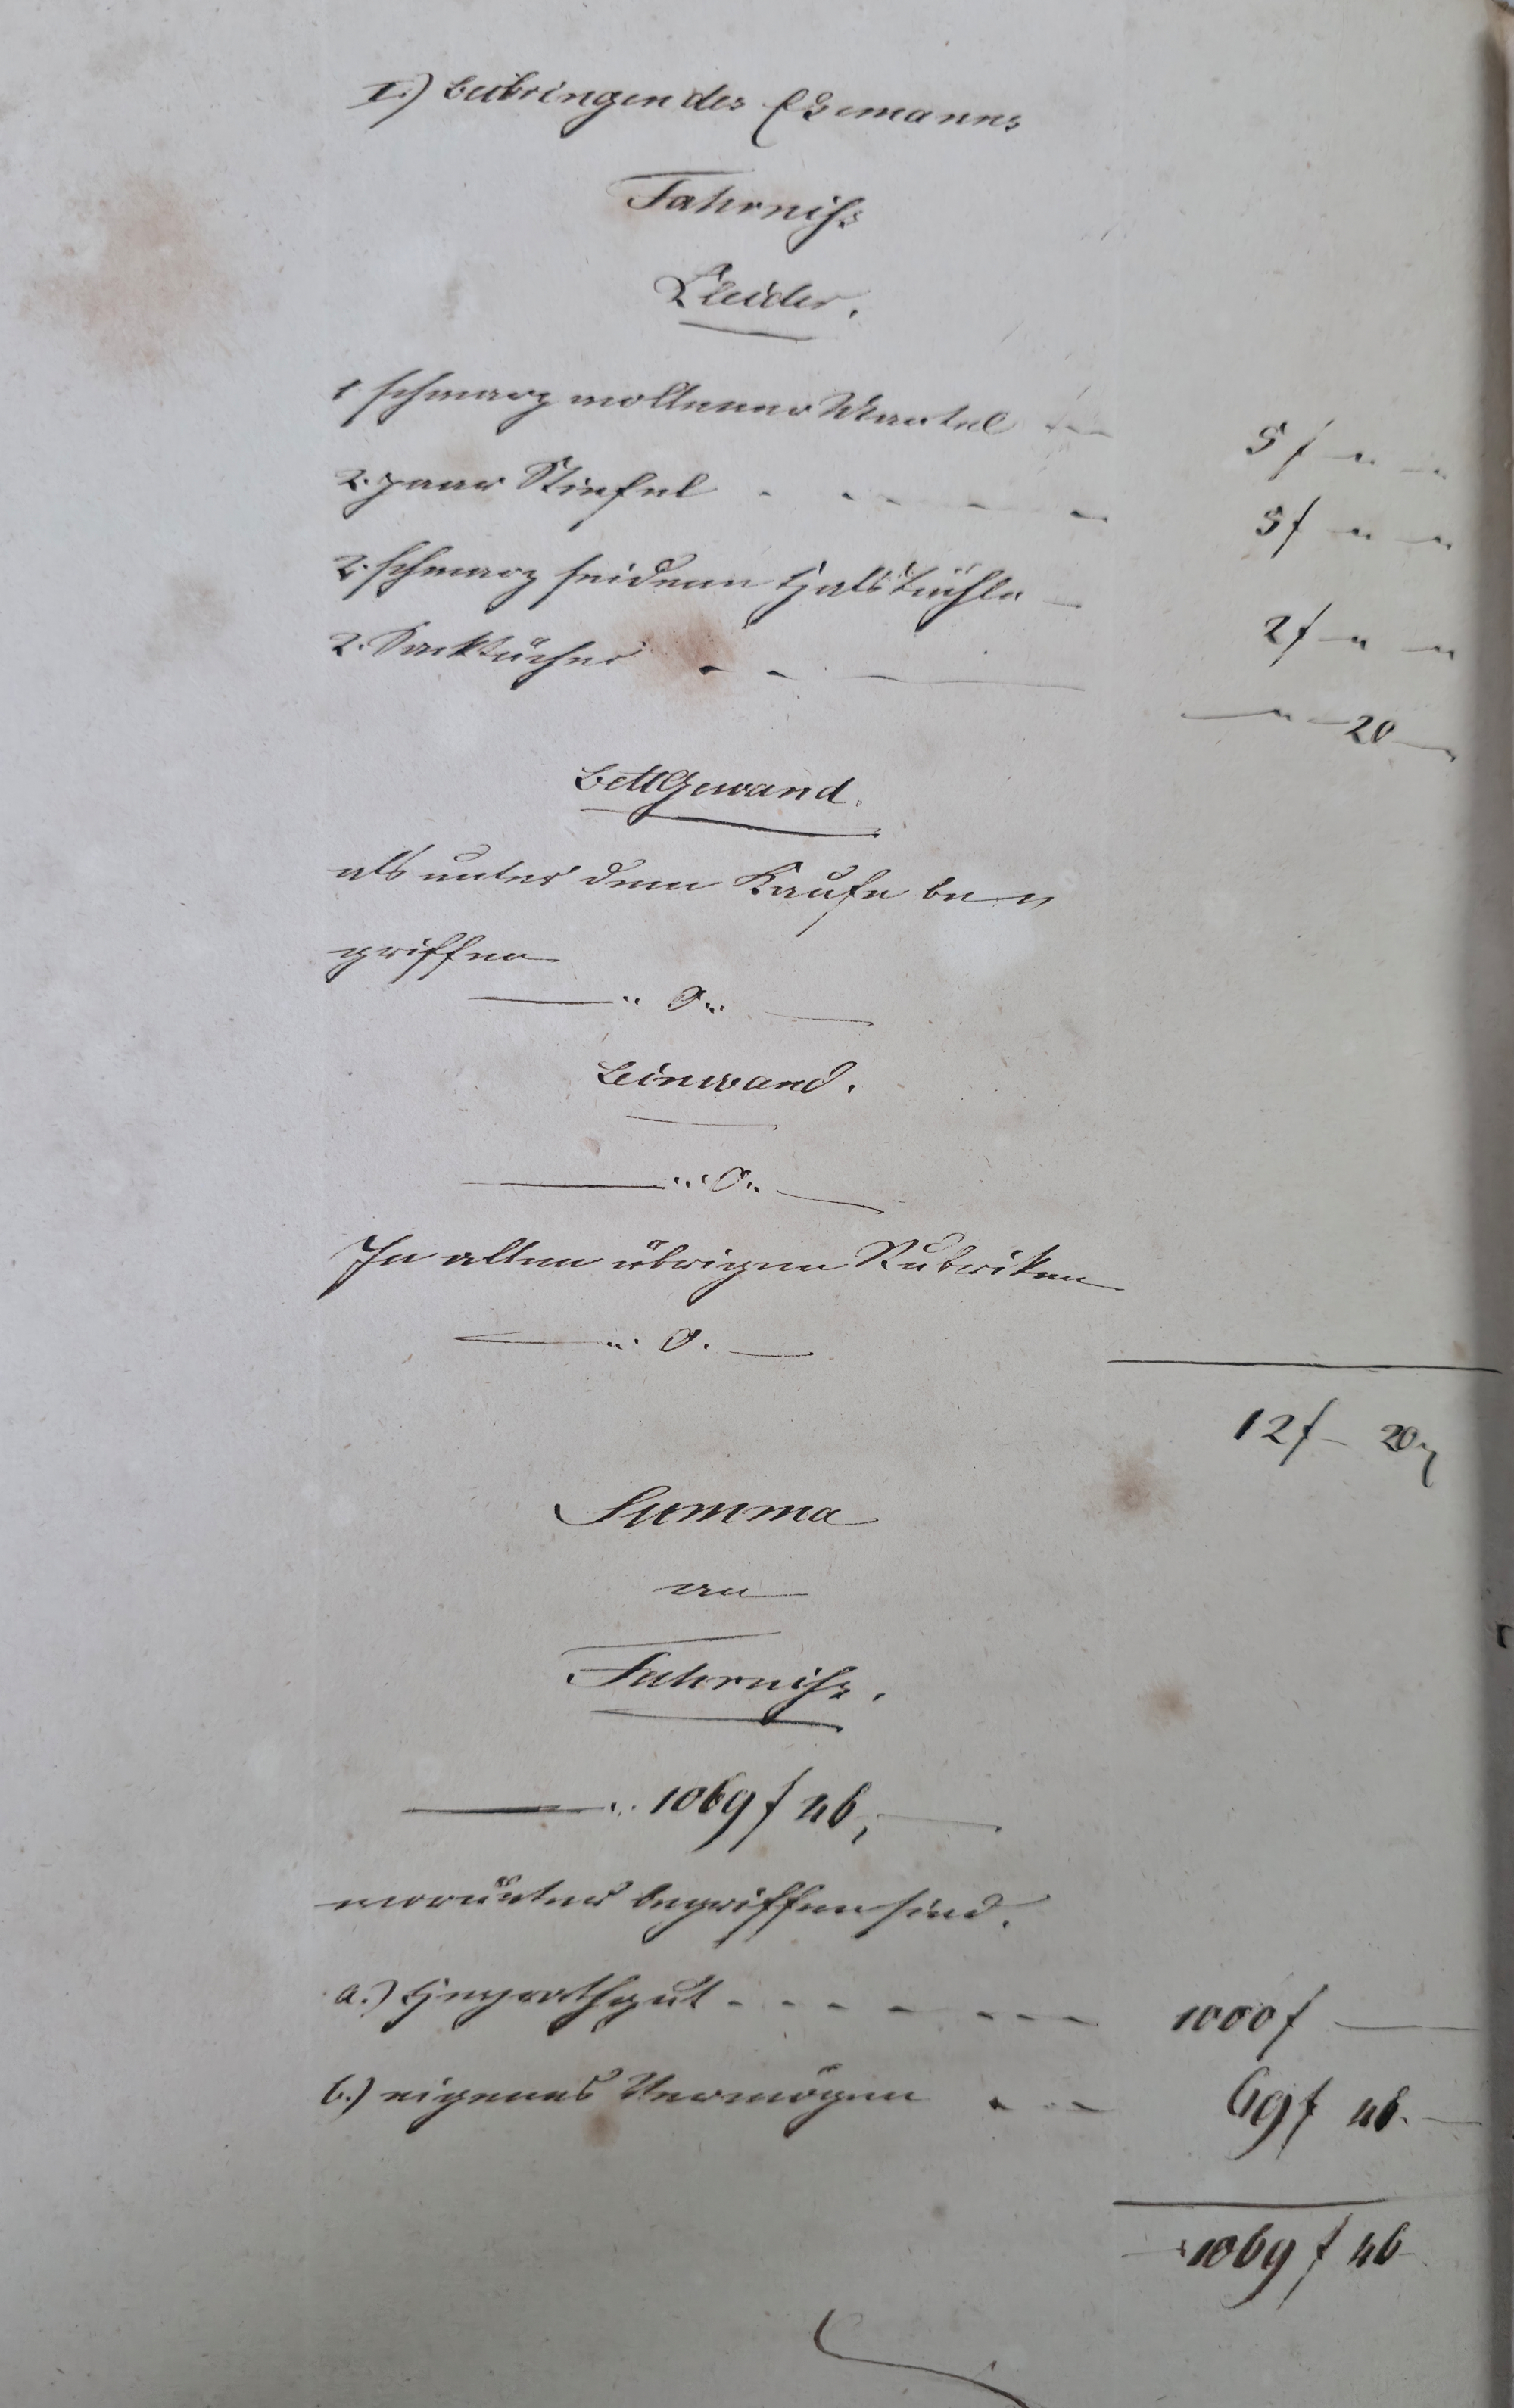 I.) Beibringen des Ehemanns
Fahrniss
Kleider.
1 schwarz wollener Mantel 5 f " "
2. paar Stiefel 5 f " "
2. schwarz seidene Halstüchle 2 f " "
2. Sacktücher " 20
BettGewand.
als unter dem Kaufe be "
griffen
" 0 "
Leinwand.
" 0 "
In allen übrigen Rubriken
" 0.
12 f 20
Summa
an
Fahrniss.
" 1069 f 46,
worunter begriffen sind.
a.) Heyrathgut 1000 f
b.) eigenes Vermögen 69 f 46.
1069 f 46